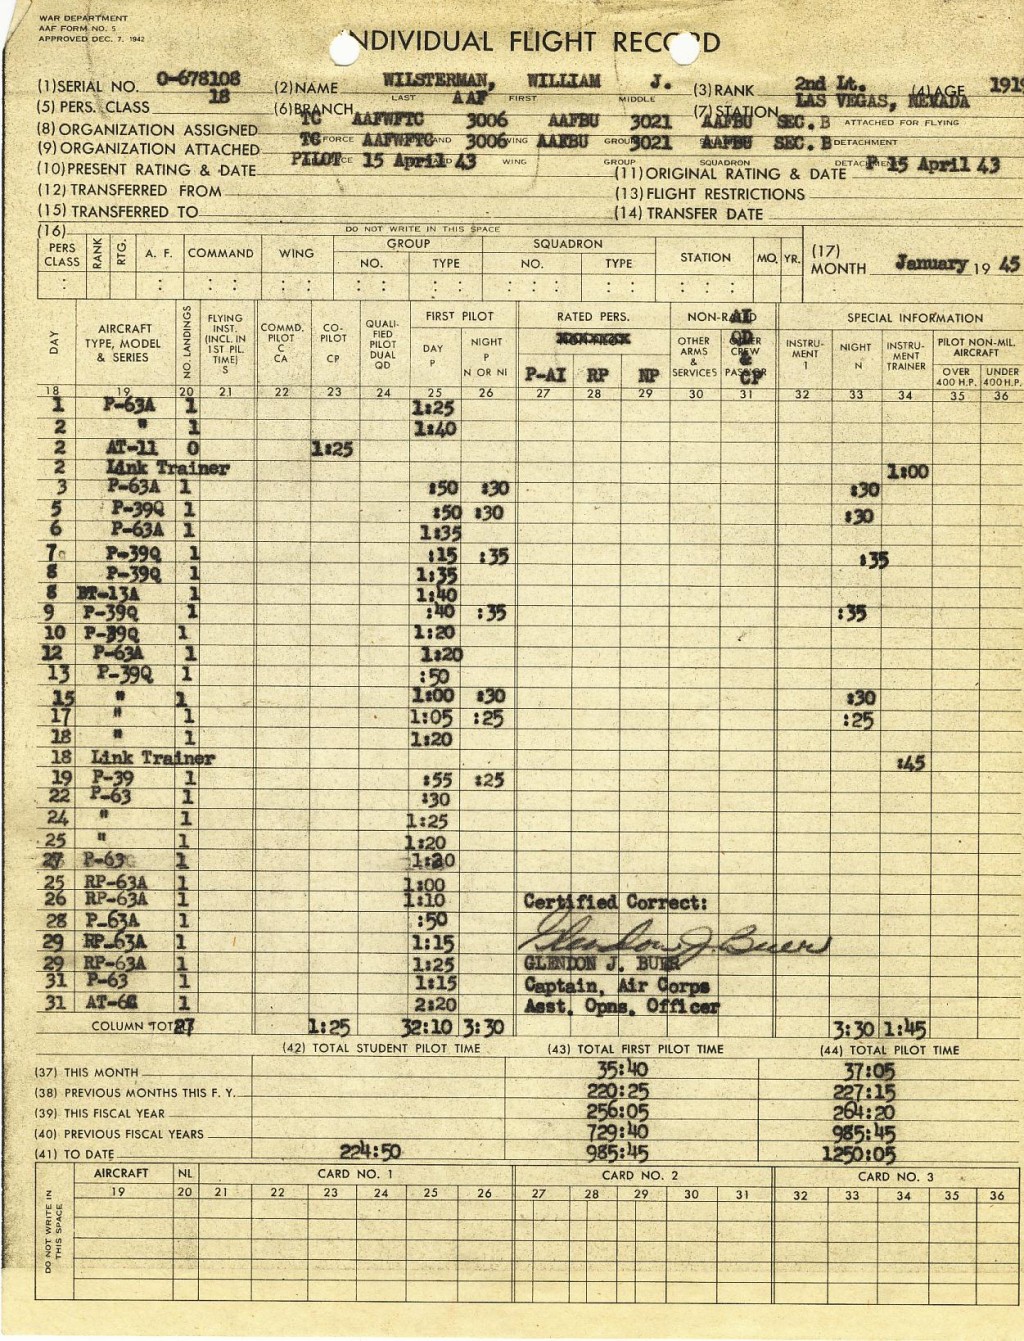 WAR DEPARTMENT
AAF FORM NO. 5
APPROVED DEC. 7, 1942
INDIVIDUAL FLIGHT RECORD
(1) SERIAL NO. O-678108 (2) NAME WILSTERMAN, WILLIAM J. (3) RANK 2nd Lt. (4) AGE 1919
LAST FIRST MIDDLE
(5) PERS. CLASS 18 (6) BRANCH AAF (7) STATION LAS VEGAS, NEVADA
(8) ORGANIZATION ASSIGNED TC AAFWFTC 3006 AAFBU 3021 AAFBU SEC. B ATTACHED FOR FLYING
(9) ORGANIZATION ATTACHED TC AAFWFTC 3006 AAFBU 3021 AAFBU SEC. B DETACHMENT
(10) PRESENT RATING & DATE PILOT 15 April 43 WING GROUP SQUADRON (11) ORIGINAL RATING & DATE P 15 April 43
(12) TRANSFERRED FROM (13) FLIGHT RESTRICTIONS
(15) TRANSFERRED TO (14) TRANSFER DATE
(16) DO NOT WRITE IN THIS SPACE
PERS CLASS RANK RTG. A. F. COMMAND WING GROUP NO. TYPE SQUADRON NO. TYPE STATION MO. YR. (17) MONTH January 19 45
DAY AIRCRAFT TYPE, MODEL & SERIES NO. LANDINGS FLYING INST. (INCL. IN 1ST PIL. TIME) S COMMD. PILOT C CA CO-PILOT CP QUALI-FIED PILOT DUAL QD FIRST PILOT DAY P NIGHT P N OR NI RATED PERS. P-AI RP NP NON-RATED OTHER ARMS & SERVICES AI QD & CP SPECIAL INFORMATION INSTRU-MENT I NIGHT N INSTRU-MENT TRAINER PILOT NON-MIL. AIRCRAFT OVER 400 H.P. UNDER 400 H.P.
18 19 20 21 22 23 24 25 26 27 28 29 30 31 32 33 34 35 36
1 P-63A 1 1:25
2 " 1 1:40
2 AT-11 0 1:25
2 Link Trainer 1:00
3 P-63A 1 :50 :30 :30
5 P-39Q 1 :50 :30 :30
6 P-63A 1 1:35
7 P-39Q 1 :15 :35 :35
8 P-39Q 1 1:35
8 BT-13A 1 1:40
9 P-39Q 1 :40 :35 :35
10 P-39Q 1 1:20
12 P-63A 1 1:20
13 P-39Q 1 :50
15 " 1 1:00 :30 :30
17 " 1 1:05 :25 :25
18 " 1 1:20
18 Link Trainer :45
19 P-39 1 :55 :25
22 P-63 1 :30
24 " 1 1:25
25 " 1 1:20
27 P-63 1 1:20
25 RP-63A 1 1:00
26 RP-63A 1 1:10 Certified Correct:
28 P-63A 1 :50
29 RP-63A 1 1:15 Glendon J. Buer
29 RP-63A 1 1:25 GLENDON J. BUER
31 P-63 1 1:15 Captain, Air Corps
31 AT-6C 1 2:20 Asst. Opns. Officer
COLUMN TOTAL 27 1:25 32:10 3:30 3:30 1:45
(42) TOTAL STUDENT PILOT TIME (43) TOTAL FIRST PILOT TIME (44) TOTAL PILOT TIME
(37) THIS MONTH 35:40 37:05
(38) PREVIOUS MONTHS THIS F. Y. 220:25 227:15
(39) THIS FISCAL YEAR 256:05 264:20
(40) PREVIOUS FISCAL YEARS 729:40 985:45
(41) TO DATE 224:50 985:45 1250:05
AIRCRAFT NL CARD NO. 1 CARD NO. 2 CARD NO. 3
19 20 21 22 23 24 25 26 27 28 29 30 31 32 33 34 35 36
DO NOT WRITE IN THIS SPACE